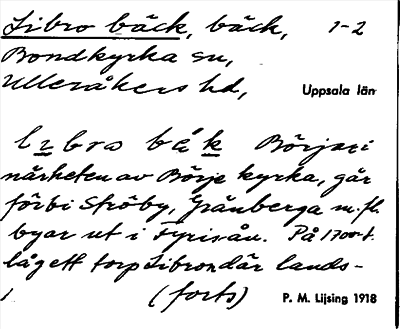 Librobäck, bäck, 1-2
Bondkyrka sn,
Ulleråkers hd, Uppsala län
lıbro bäk Börjar i
närheten av Börje kyrka, går
förbi Ströby, Gränberga m. fl.
byar ut i Fyrisån. På 1700-t.
låg ett torp Libron där lands-
(forts) P. M. Lijsing 1918